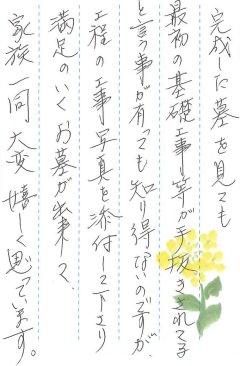 完成した墓を見ても
最初の基礎工事等が手抜きされてる
と言う事が有っても知り得ないのですが、
工程の工事写真を添付して下さり
満足のいくお墓が出来て、
家族一同大変嬉しく思っています。